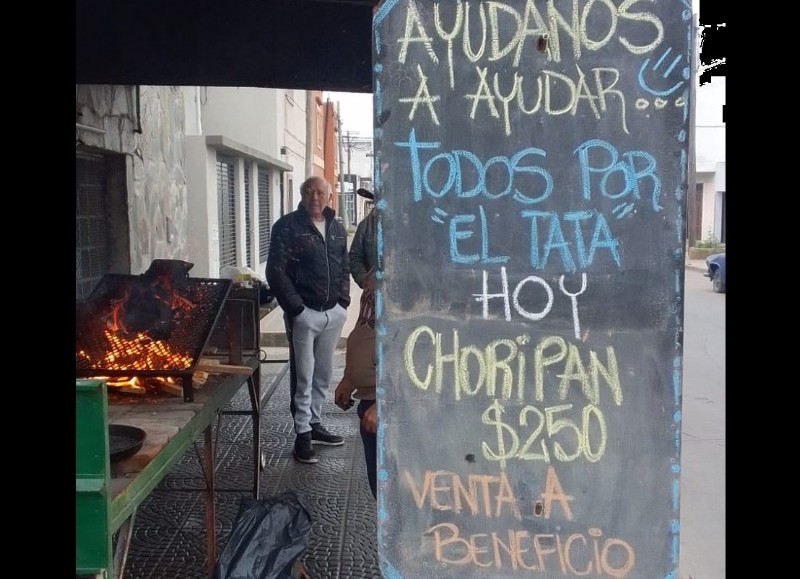 AYUDANOS
A AYUDAR...
TODOS POR
"EL TATA"
HOY
CHORIPÁN
$250
VENTA A
BENEFICIO